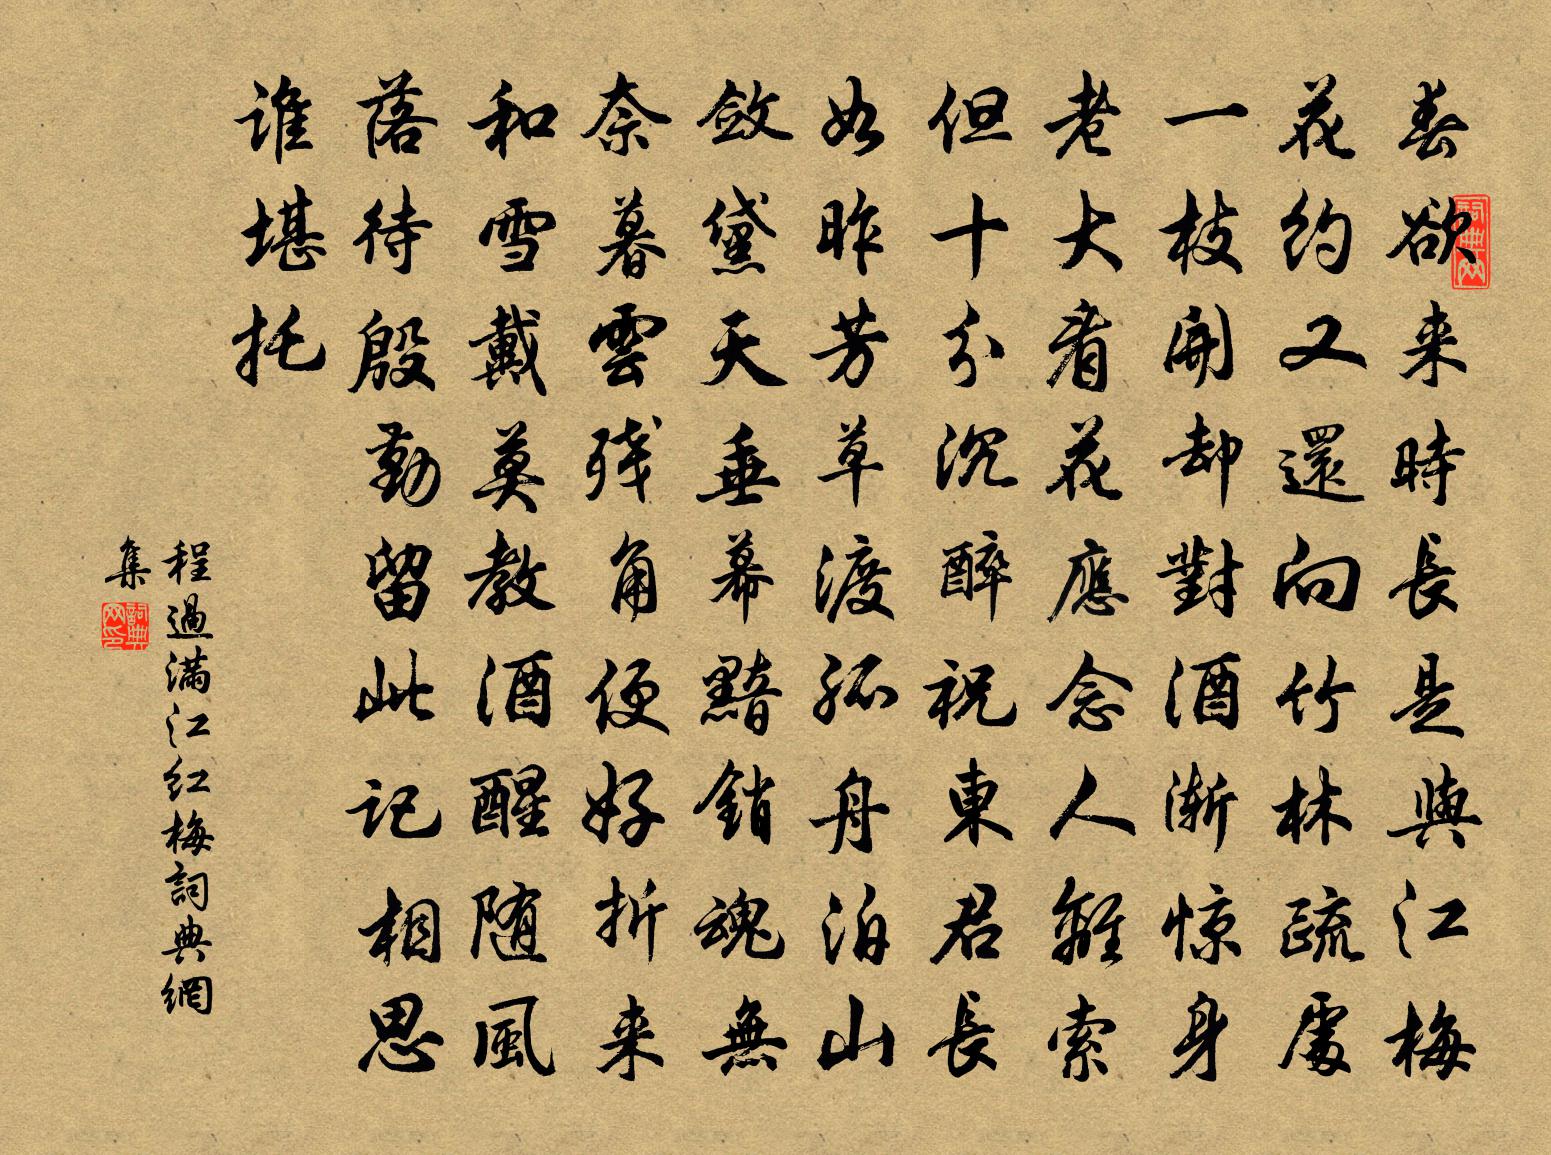 春欲来時長是與江梅
花约又還向竹林疏處
一枝開却對酒渐惊身
老大看花應念人離索
但十分沉醉祝東君長
如昨芳草渡孤舟泊山
敛黛天垂幕黯銷魂無
奈暮雲残角便好折来
和雪戴莫教酒醒随風
落待殷勤留此記相思
谁堪托
程過满江红梅詞典網
集
詞典网
詞典网印